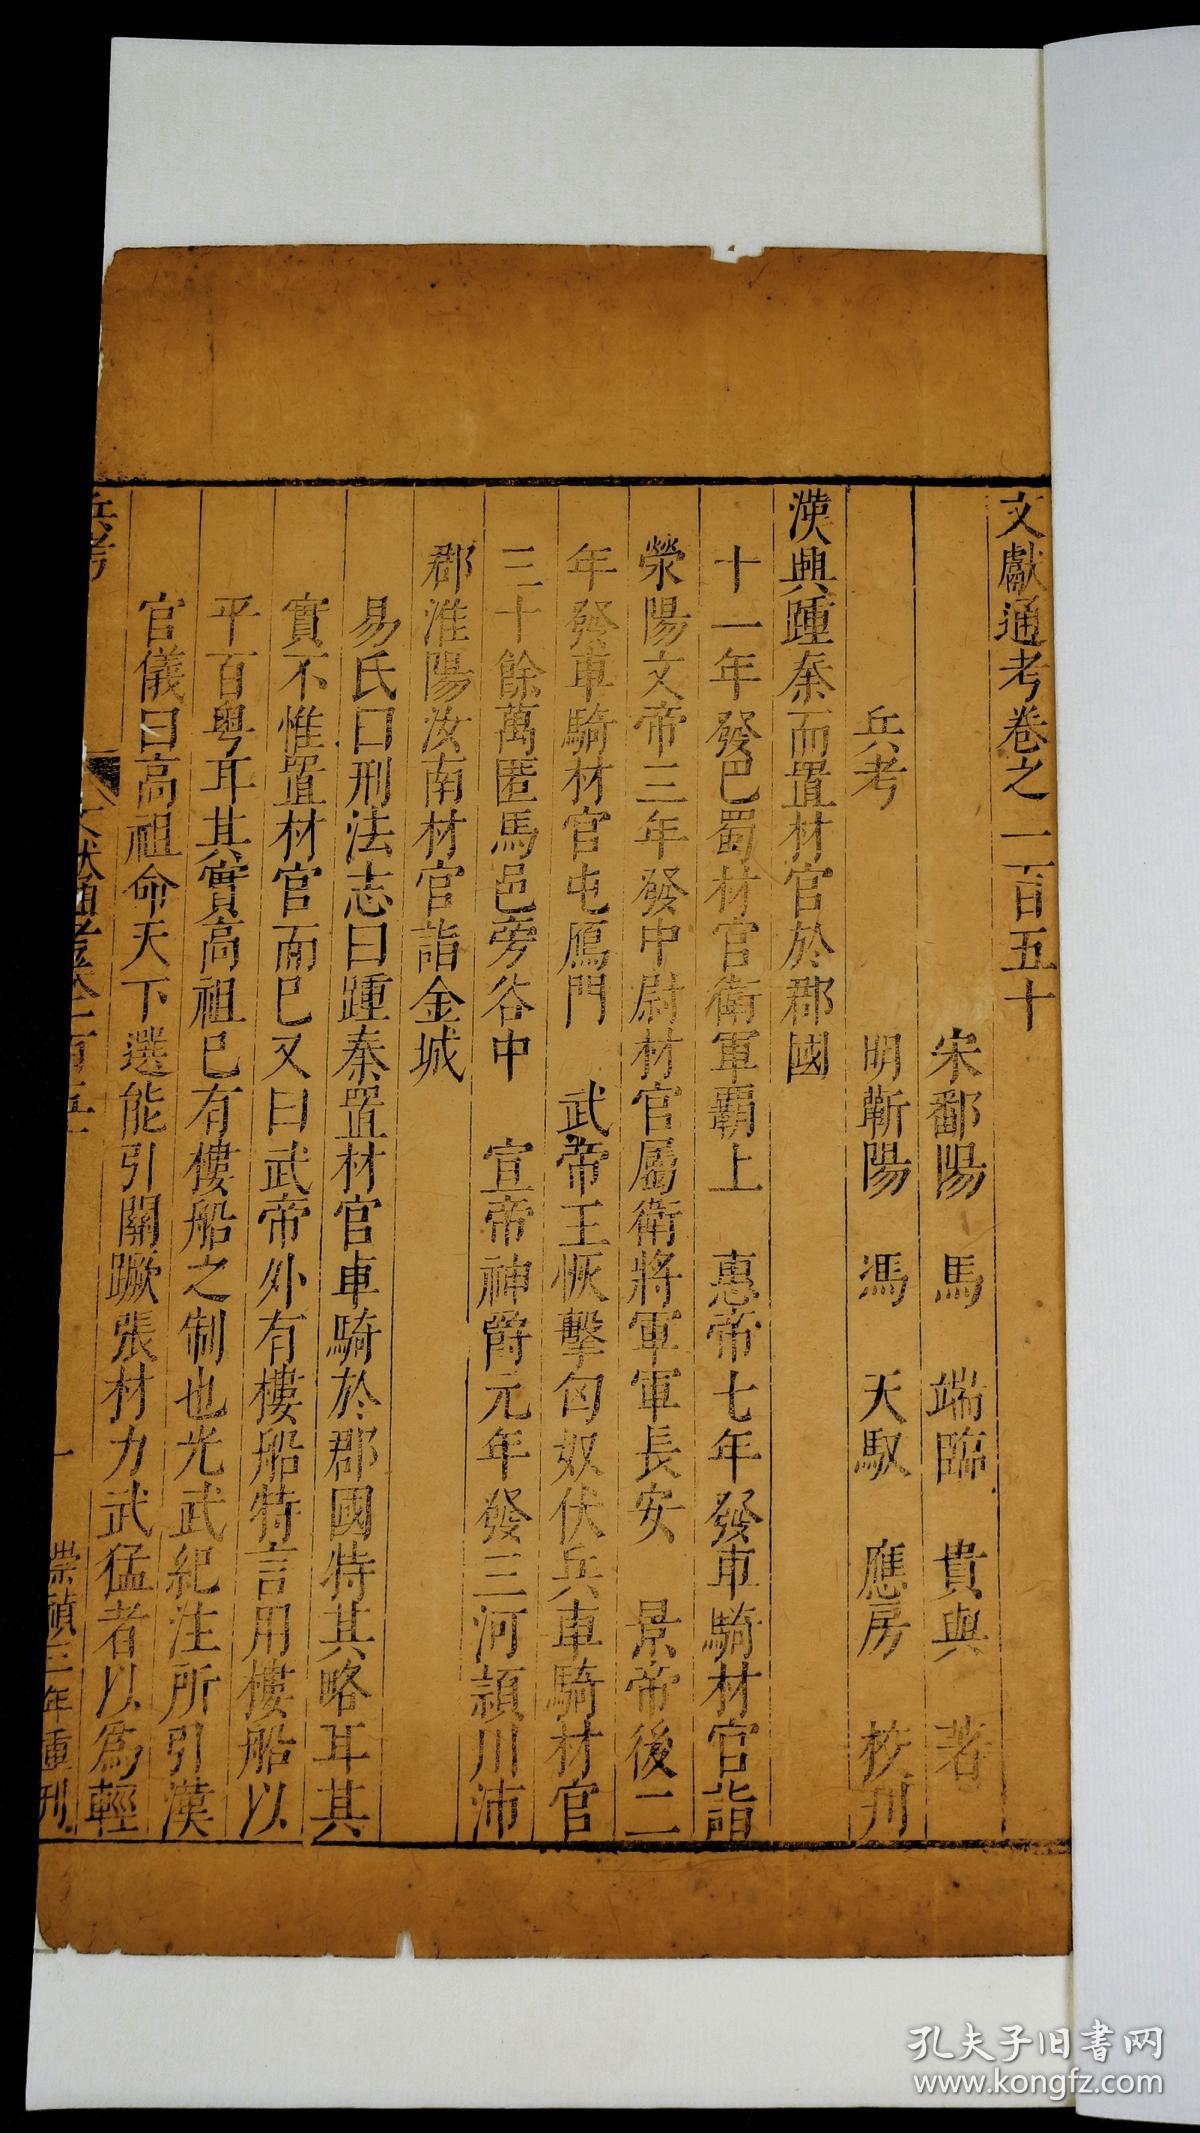 文獻通考卷之一百五十
宋鄱陽 馬 端臨 貴與 著
兵考 明蘄陽 馮 天馭 應房 校刋
漢興踵秦而置材官於郡國
十一年發巴蜀材官衛軍覇上 惠帝七年發車騎材官詣
滎陽文帝三年發中尉材官屬衛將軍軍長安 景帝後二
年發車騎材官屯鴈門 武帝王恢擊匈奴伏兵車騎材官
三十餘萬匿馬邑旁谷中 宣帝神爵元年發三河潁川沛
郡淮陽汝南材官詣金城
易氏曰刑法志曰踵秦置材官車騎於郡國特其略耳其
實不惟置材官而已又曰武帝外有樓船特言用樓船以
平百粤耳其實高祖已有樓船之制也光武紀注所引漢
官儀曰高祖命天下選能引關蹶張材力武猛者以爲輕
兵考
一
崇禎三年重刋
孔夫子旧书网
www.kongfz.com